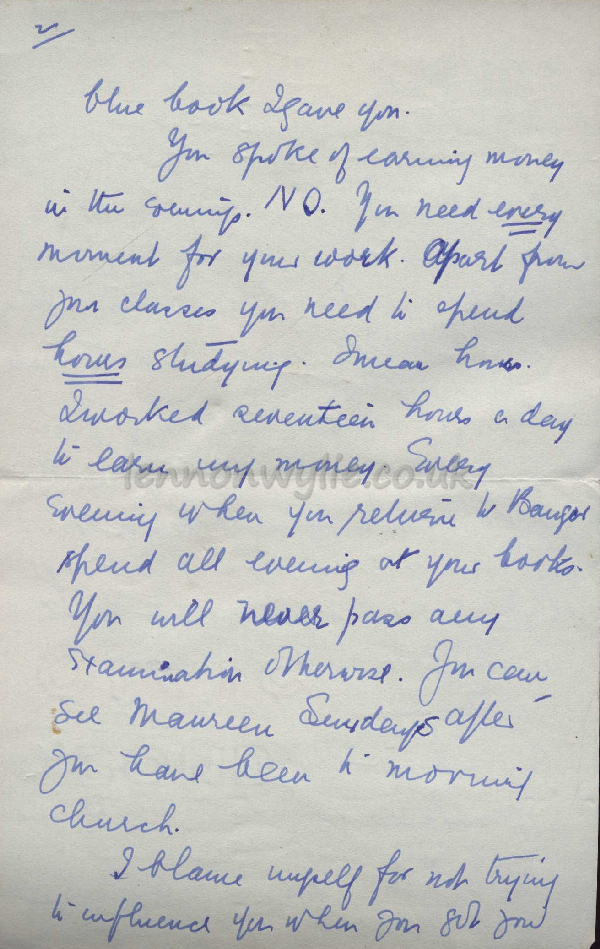 2
blue book I gave you.
You spoke of earning money
in the evenings. NO. You need every
moment for your work. Apart from
your classes you need to spend
hours studying. I mean hours.
I worked seventeen hours a day
to earn my money. Every
lennonwylie.co.uk
evening when you return to Bangor
spend all evening at your books.
You will never pass any
examination otherwise. You can
see Maureen Sundays after
you have been to morning
church.
I blame myself for not trying
to influence you when you got your